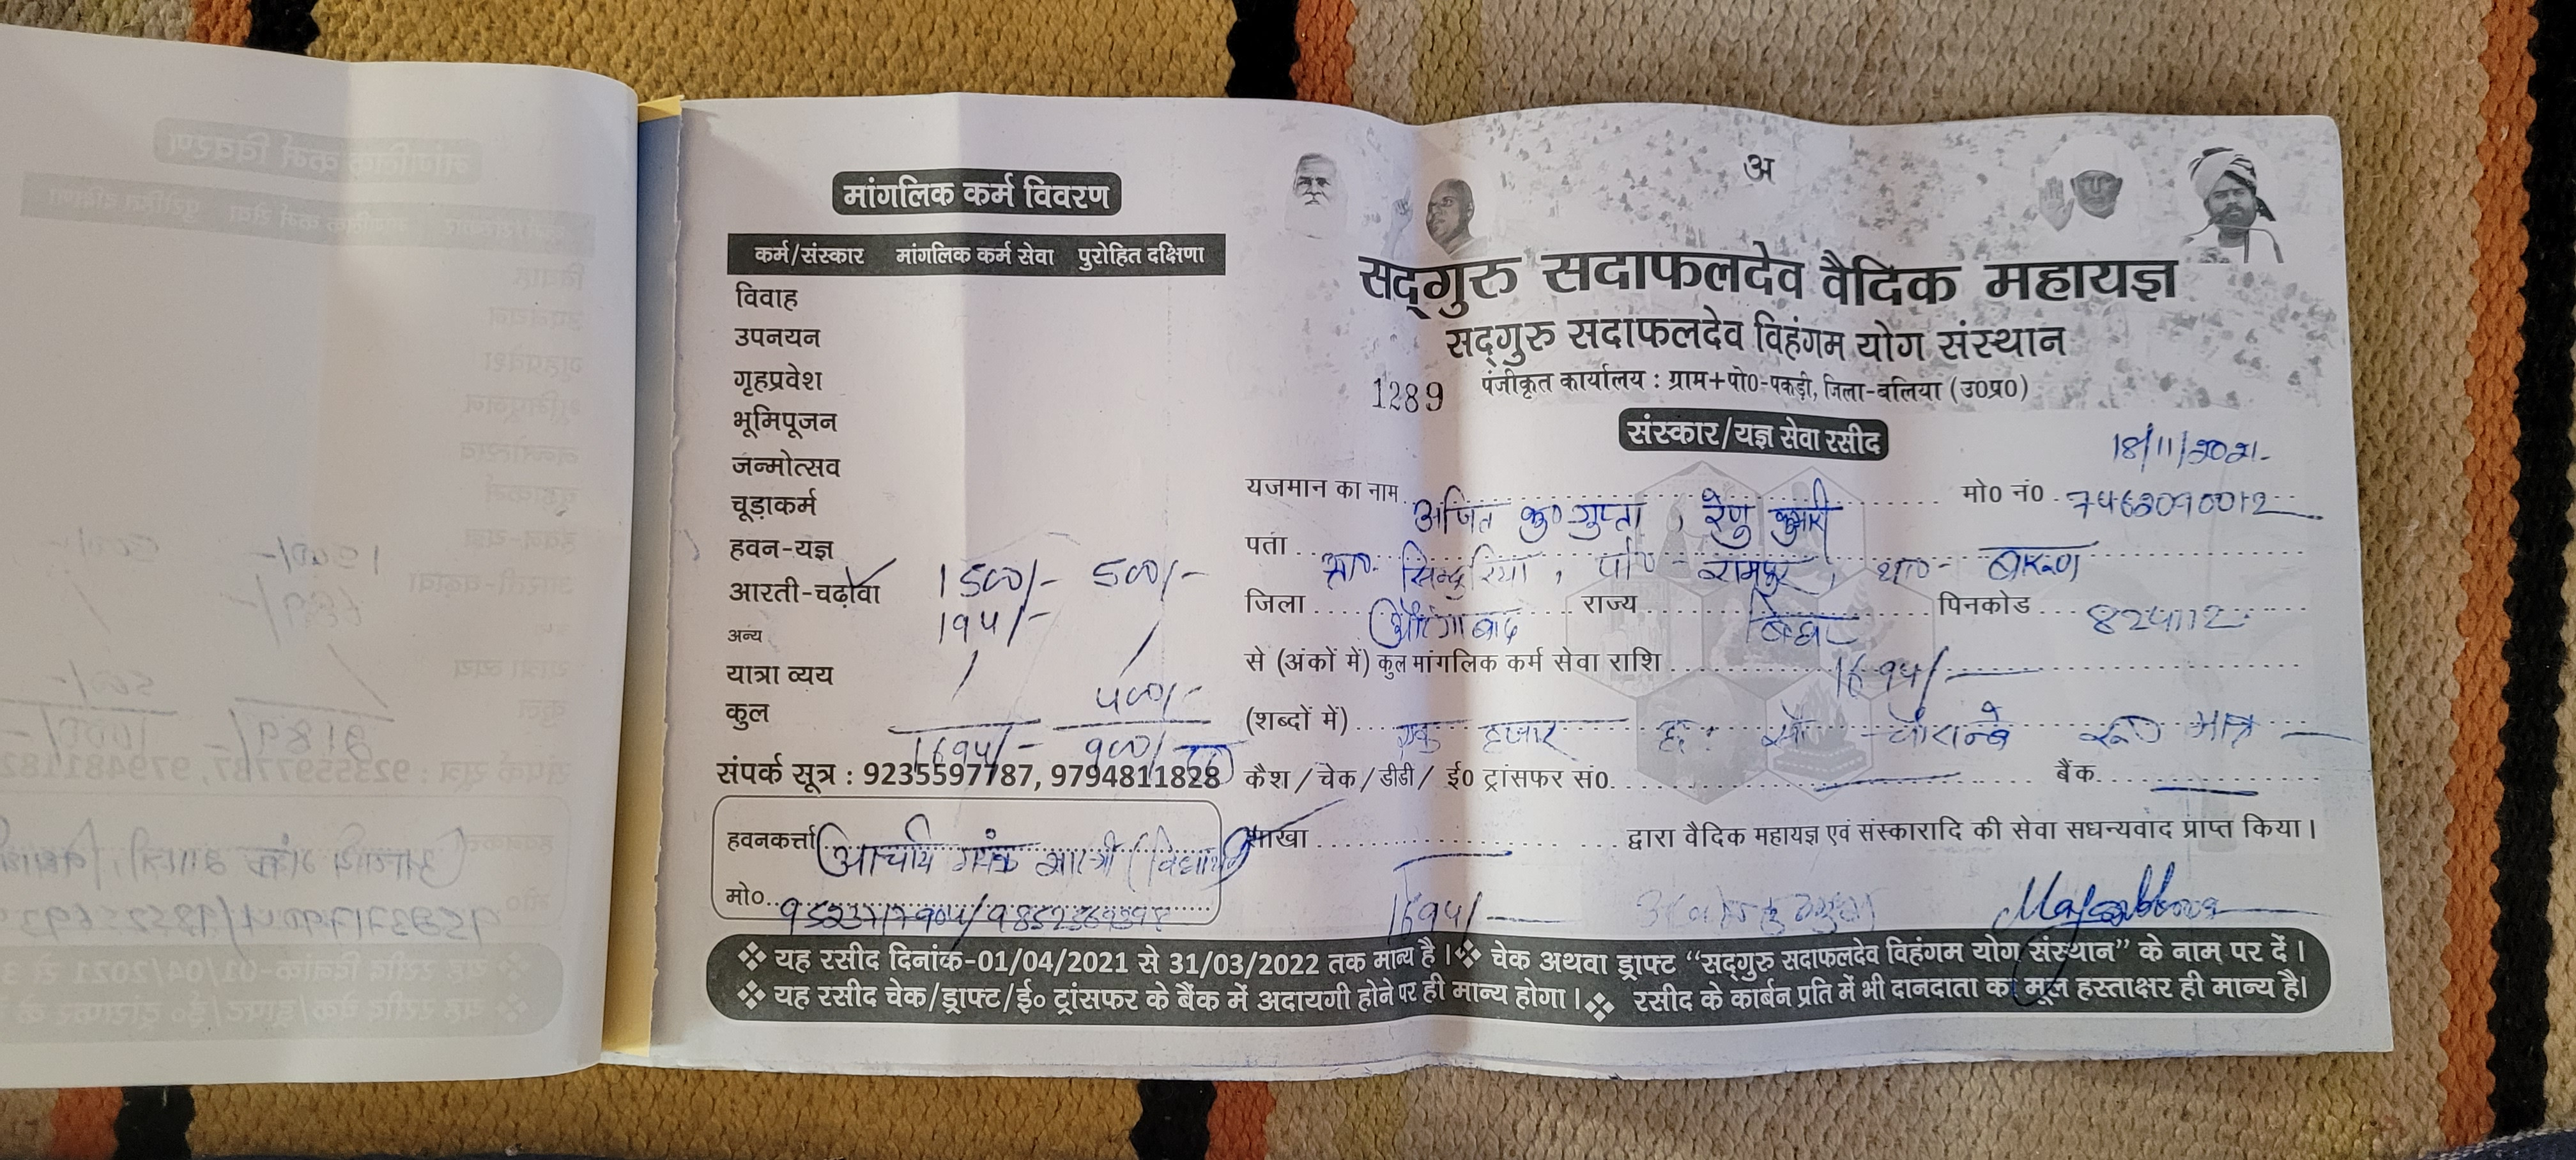 मांगलिक कर्म विवरण
कर्म/संस्कार मांगलिक कर्म सेवा पुरोहित दक्षिणा
विवाह
उपनयन
गृहप्रवेश
भूमिपूजन
जन्मोत्सव
चूड़ाकर्म
हवन-यज्ञ
आरती-चढ़ावा 1500/- 500/-
अन्य 194/-
यात्रा व्यय
कुल
1694/- 900/-
संपर्क सूत्र : 9235597787, 9794811828
हवनकर्त्ता आचार्य
मो०
अ
सद्गुरु सदाफलदेव वैदिक महायज्ञ
सद्गुरु सदाफलदेव विहंगम योग संस्थान
1289 पंजीकृत कार्यालय : ग्राम+पो०-पकड़ी, जिला-बलिया (उ०प्र०)
संस्कार/यज्ञ सेवा रसीद
18/11/2021
यजमान का नाम अजित कु० गुप्ता, रेणु कुमारी मो० नं०
पता सिन्दुरिया, पो०- रामपुर, था०- बारूण
जिला औरंगाबाद राज्य बिहार पिनकोड 824112
से (अंकों में) कुल मांगलिक कर्म सेवा राशि 1694/-
(शब्दों में) एक हजार छः सौ चौरान्बे रू० मात्र
कैश / चेक / डीडी / ई० ट्रांसफर सं०. बैंक
शाखा द्वारा वैदिक महायज्ञ एवं संस्कारादि की सेवा सधन्यवाद प्राप्त किया।
1694/-
❖ यह रसीद दिनांक-01/04/2021 से 31/03/2022 तक मान्य है। ❖ चेक अथवा ड्राफ्ट “सद्गुरु सदाफलदेव विहंगम योग संस्थान” के नाम पर दें।
❖ यह रसीद चेक/ड्राफ्ट/ई० ट्रांसफर के बैंक में अदायगी होने पर ही मान्य होगा। ❖ रसीद के कार्बन प्रति में भी दानदाता का मूल हस्ताक्षर ही मान्य है।